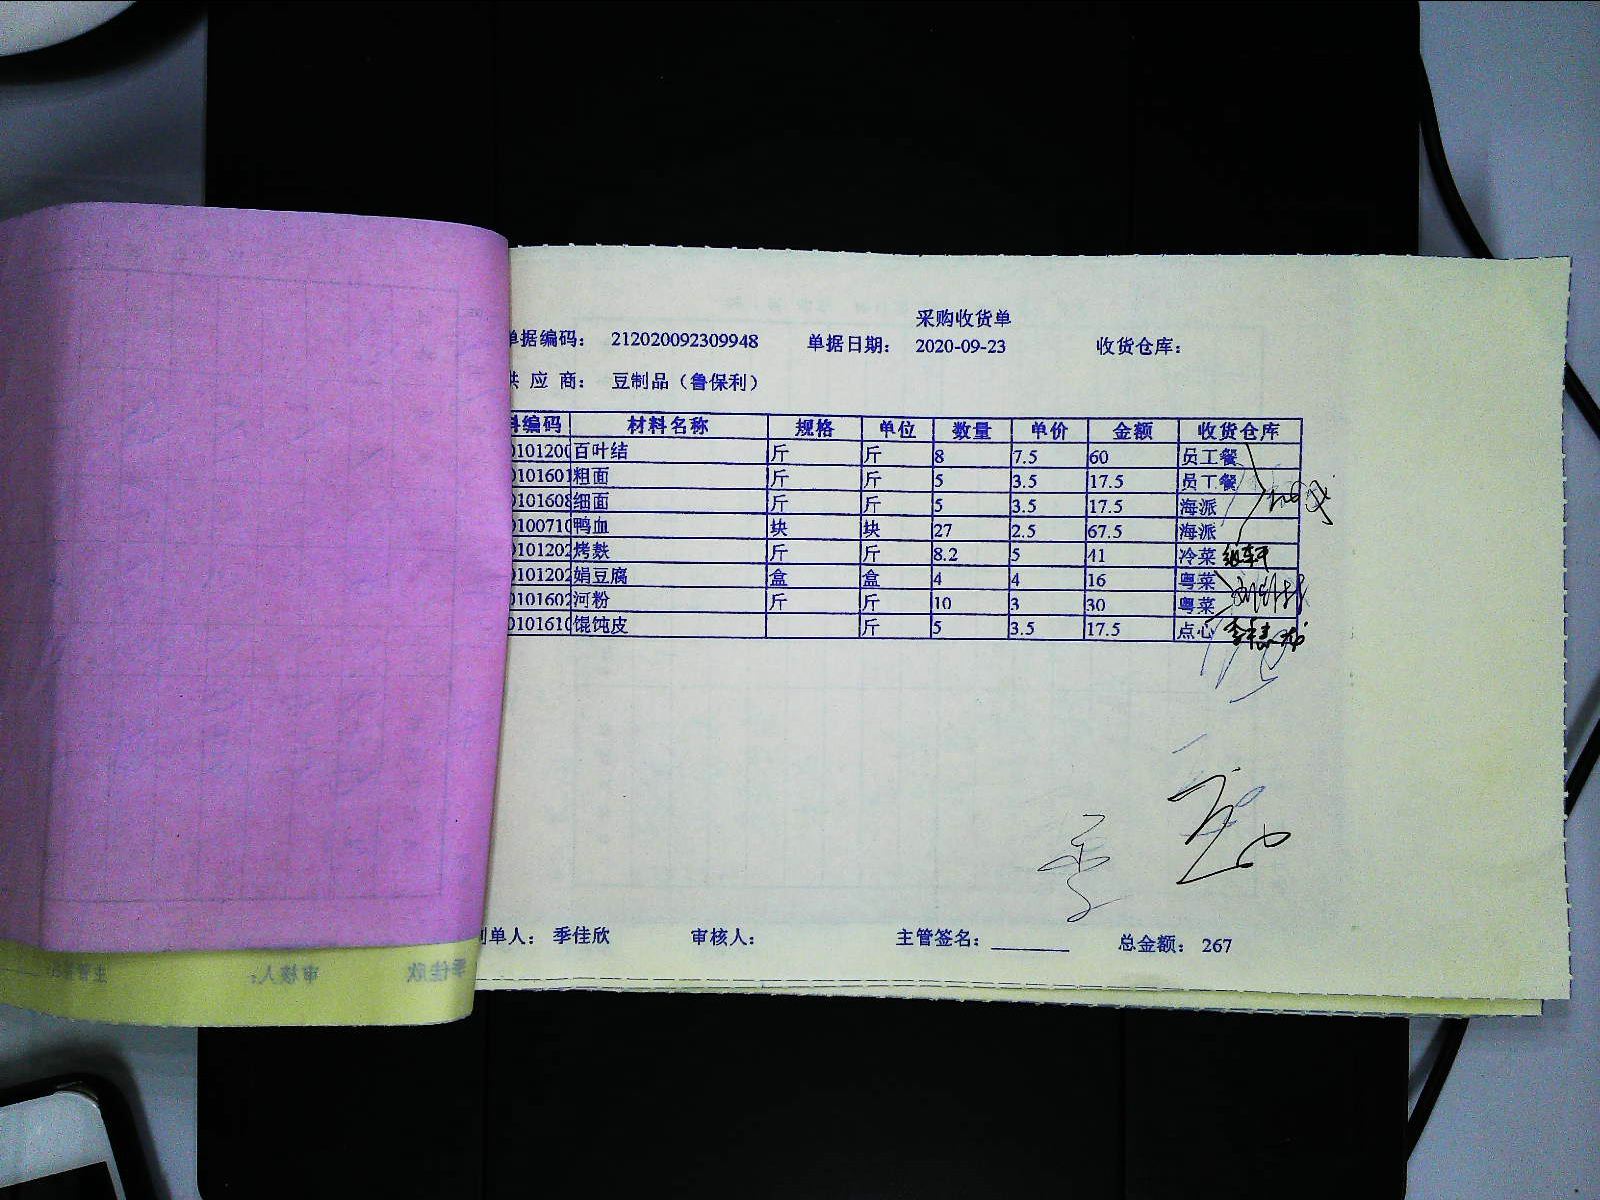 采购收货单
单据编码： 212020092309948 单据日期： 2020-09-23 收货仓库：
供 应 商： 豆制品（鲁保利）
料编码 材料名称 规格 单位 数量 单价 金额 收货仓库
0101200 百叶结 斤 斤 8 7.5 60 员工餐
0101601 粗面 斤 斤 5 3.5 17.5 员工餐
0101608 细面 斤 斤 5 3.5 17.5 海派
0100710 鸭血 块 块 27 2.5 67.5 海派
0101202 烤麸 斤 斤 8.2 5 41 冷菜
0101202 娟豆腐 盒 盒 4 4 16 粤菜
0101602 河粉 斤 斤 10 3 30 粤菜
0101610 馄饨皮 斤 5 3.5 17.5 点心
制单人： 季佳欣 审核人： 主管签名： 总金额： 267